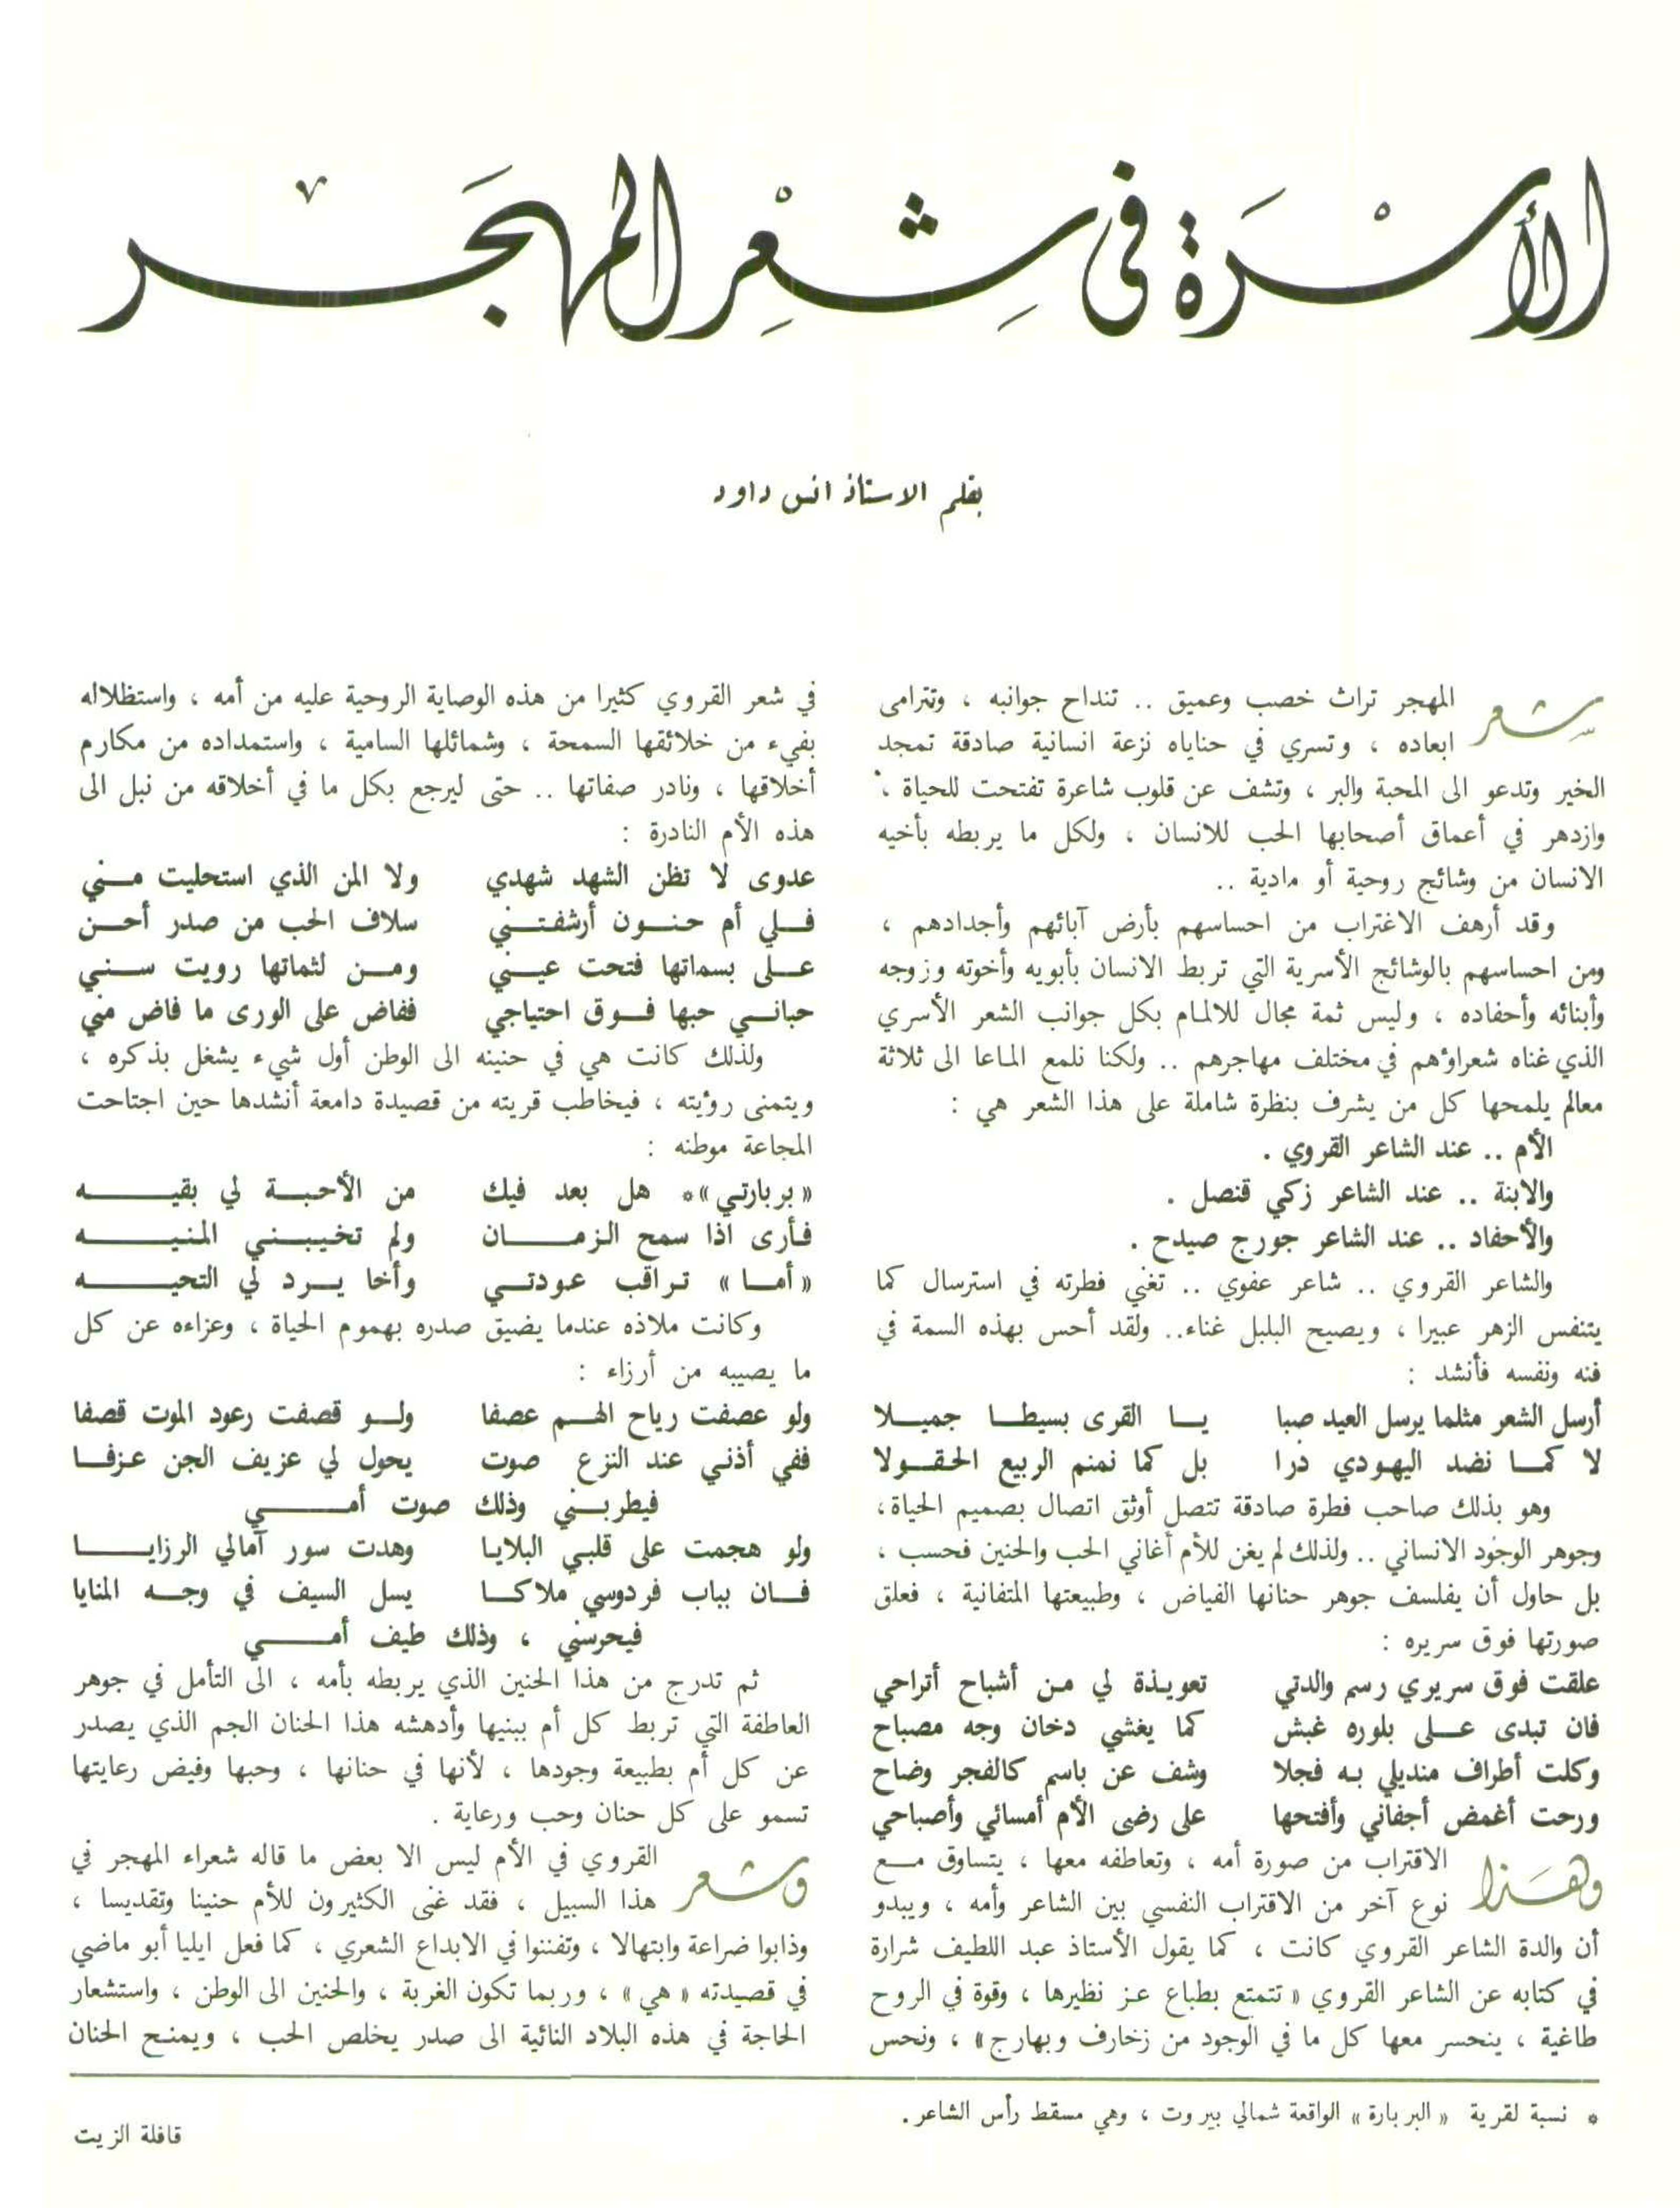 الأسرة في شعر المهجر
بقلم الاستاذ انس داود
شعر المهجر تراث خصب وعميق .. تنداح جوانبه ، وتترامى
ابعاده ، وتسري في حناياه نزعة انسانية صادقة تمجد
الخير وتدعو الى المحبة والبر ، وتشف عن قلوب شاعرة تفتحت للحياة ،
وازدهر في أعماق أصحابها الحب للانسان ، ولكل ما يربطه بأخيه
الانسان من وشائج روحية أو مادية ..
وقد أرهف الاغتراب من احساسهم بأرض آبائهم وأجدادهم ،
ومن احساسهم بالوشائج الأسرية التي تربط الانسان بأبويه وأخوته وزوجه
وأبنائه وأحفاده ، وليس ثمة مجال للالمام بكل جوانب الشعر الأسري
الذي غناه شعراؤهم في مختلف مهاجرهم .. ولكنا نلمع الماعا الى ثلاثة
معالم يلمحها كل من يشرف بنظرة شاملة على هذا الشعر هي :
الأم .. عند الشاعر القروي .
والابنة .. عند الشاعر زكي قنصل .
والأحفاد .. عند الشاعر جورج صيدح .
والشاعر القروي .. شاعر عفوي .. تغني فطرته في استرسال كما
يتنفس الزهر عبيرا ، ويصيح البلبل غناء.. ولقد أحس بهذه السمة في
فنه ونفسه فأنشد :
أرسل الشعر مثلما يرسل العيد صبا يــا القرى بسيطــا جميــلا
لا كمــا نضد اليهودي ذرا بل كما نمنم الربيع الحقــولا
وهو بذلك صاحب فطرة صادقة تتصل أوثق اتصال بصميم الحياة،
وجوهر الوجود الانساني .. ولذلك لم يغن للأم أغاني الحب والحنين فحسب ،
بل حاول أن يفلسف جوهر حنانها الفياض ، وطبيعتها المتفانية ، فعلق
صورتها فوق سريره :
علقت فوق سريري رسم والدتي تعويذة لي مـن أشباح أتراحي
فان تبدى عــلى بلوره غبش كما يغشي دخان وجه مصباح
وكلت أطراف منديلي بـه فجلا وشف عن باسم كالفجر وضاح
ورحت أغمض أجفاني وأفتحها على رضى الأم أمسائي وأصباحي
وهذا الاقتراب من صورة أمه ، وتعاطفه معها ، يتساوق مــع
نوع آخر من الاقتراب النفسي بين الشاعر وأمه ، ويبدو
أن والدة الشاعر القروي كانت ، كما يقول الأستاذ عبد اللطيف شرارة
في كتابه عن الشاعر القروي « تتمتع بطباع عـز نظيرها ، وقوة في الروح
طاغية ، ينحسر معها كل ما في الوجود من زخارف وبهارج» ، ونحس
في شعر القروي كثيرا من هذه الوصاية الروحية عليه من أمه ، واستظلاله
بفيء من خلائقها السمحة ، وشمائلها السامية ، واستمداده من مكارم
أخلاقها ، ونادر صفاتها .. حتى ليرجع بكل ما في أخلاقه من نبل الى
هذه الأم النادرة :
عدوى لا تظن الشهد شهدي ولا المن الذي استحليت مــني
فــلي أم حنــون أرشفتــني سلاف الحب من صدر أحــن
عــلى بسماتها فتحت عيــني ومــن لثماتها رويت ســني
حبانــي حبها فــوق احتياجي ففاض على الورى ما فاض مني
ولذلك كانت هي في حنينه الى الوطن أول شيء يشغل بذكره ،
ويتمنى رؤيته ، فيخاطب قريته من قصيدة دامعة أنشدها حين اجتاحت
المجاعة موطنه :
« بربارتي»* هل بعد فيك من الأحبــة لي بقيــــه
فأرى اذا سمح الزمــــان ولم تخيبــني المنيــــه
« أمــا » تراقب عودتــي وأخا يــرد لي التحيــــه
وكانت ملاذه عندما يضيق صدره بهموم الحياة ، وعزاءه عن كل
ما يصيبه من أرزاء :
ولو عصفت رياح الهــم عصفا ولــو قصفت رعود الموت قصفا
ففي أذنـي عند النزع صوت يحول لي عزيف الجن عزفــا
فيطربــني وذلك صوت أمــــي
ولو هجمت على قلبـي البلايا وهدت سور آمالي الرزايــــا
فــان بباب فردوسي ملاكــا يسل السيف في وجــه المنايا
فيحرسني ، وذلك طيف أمــــي
ثم تدرج من هذا الحنين الذي يربطه بأمه ، الى التأمل في جوهر
العاطفة التي تربط كل أم ببنيها وأدهشه هذا الحنان الجم الذي يصدر
عن كل أم بطبيعة وجودها ، لأنها في حنانها ، وحبها وفيض رعايتها
تسمو على كل حنان وحب ورعاية .
وشعر القروي في الأم ليس الا بعض ما قاله شعراء المهجر في
هذا السبيل ، فقد غنى الكثيرون للأم حنينا وتقديسا ،
وذابوا ضراعة وابتهالا ، وتفننوا في الابداع الشعري ، كما فعل ايليا أبو ماضي
في قصيدته « هي » ، وربما تكون الغربة ، والحنين الى الوطن ، واستشعار
الحاجة في هذه البلاد النائية الى صدر يخلص الحب ، ويمنح الحنان
* نسبة لقرية « البربارة » الواقعة شمالي بيروت ، وهي مسقط رأس الشاعر .
قافلة الزيت